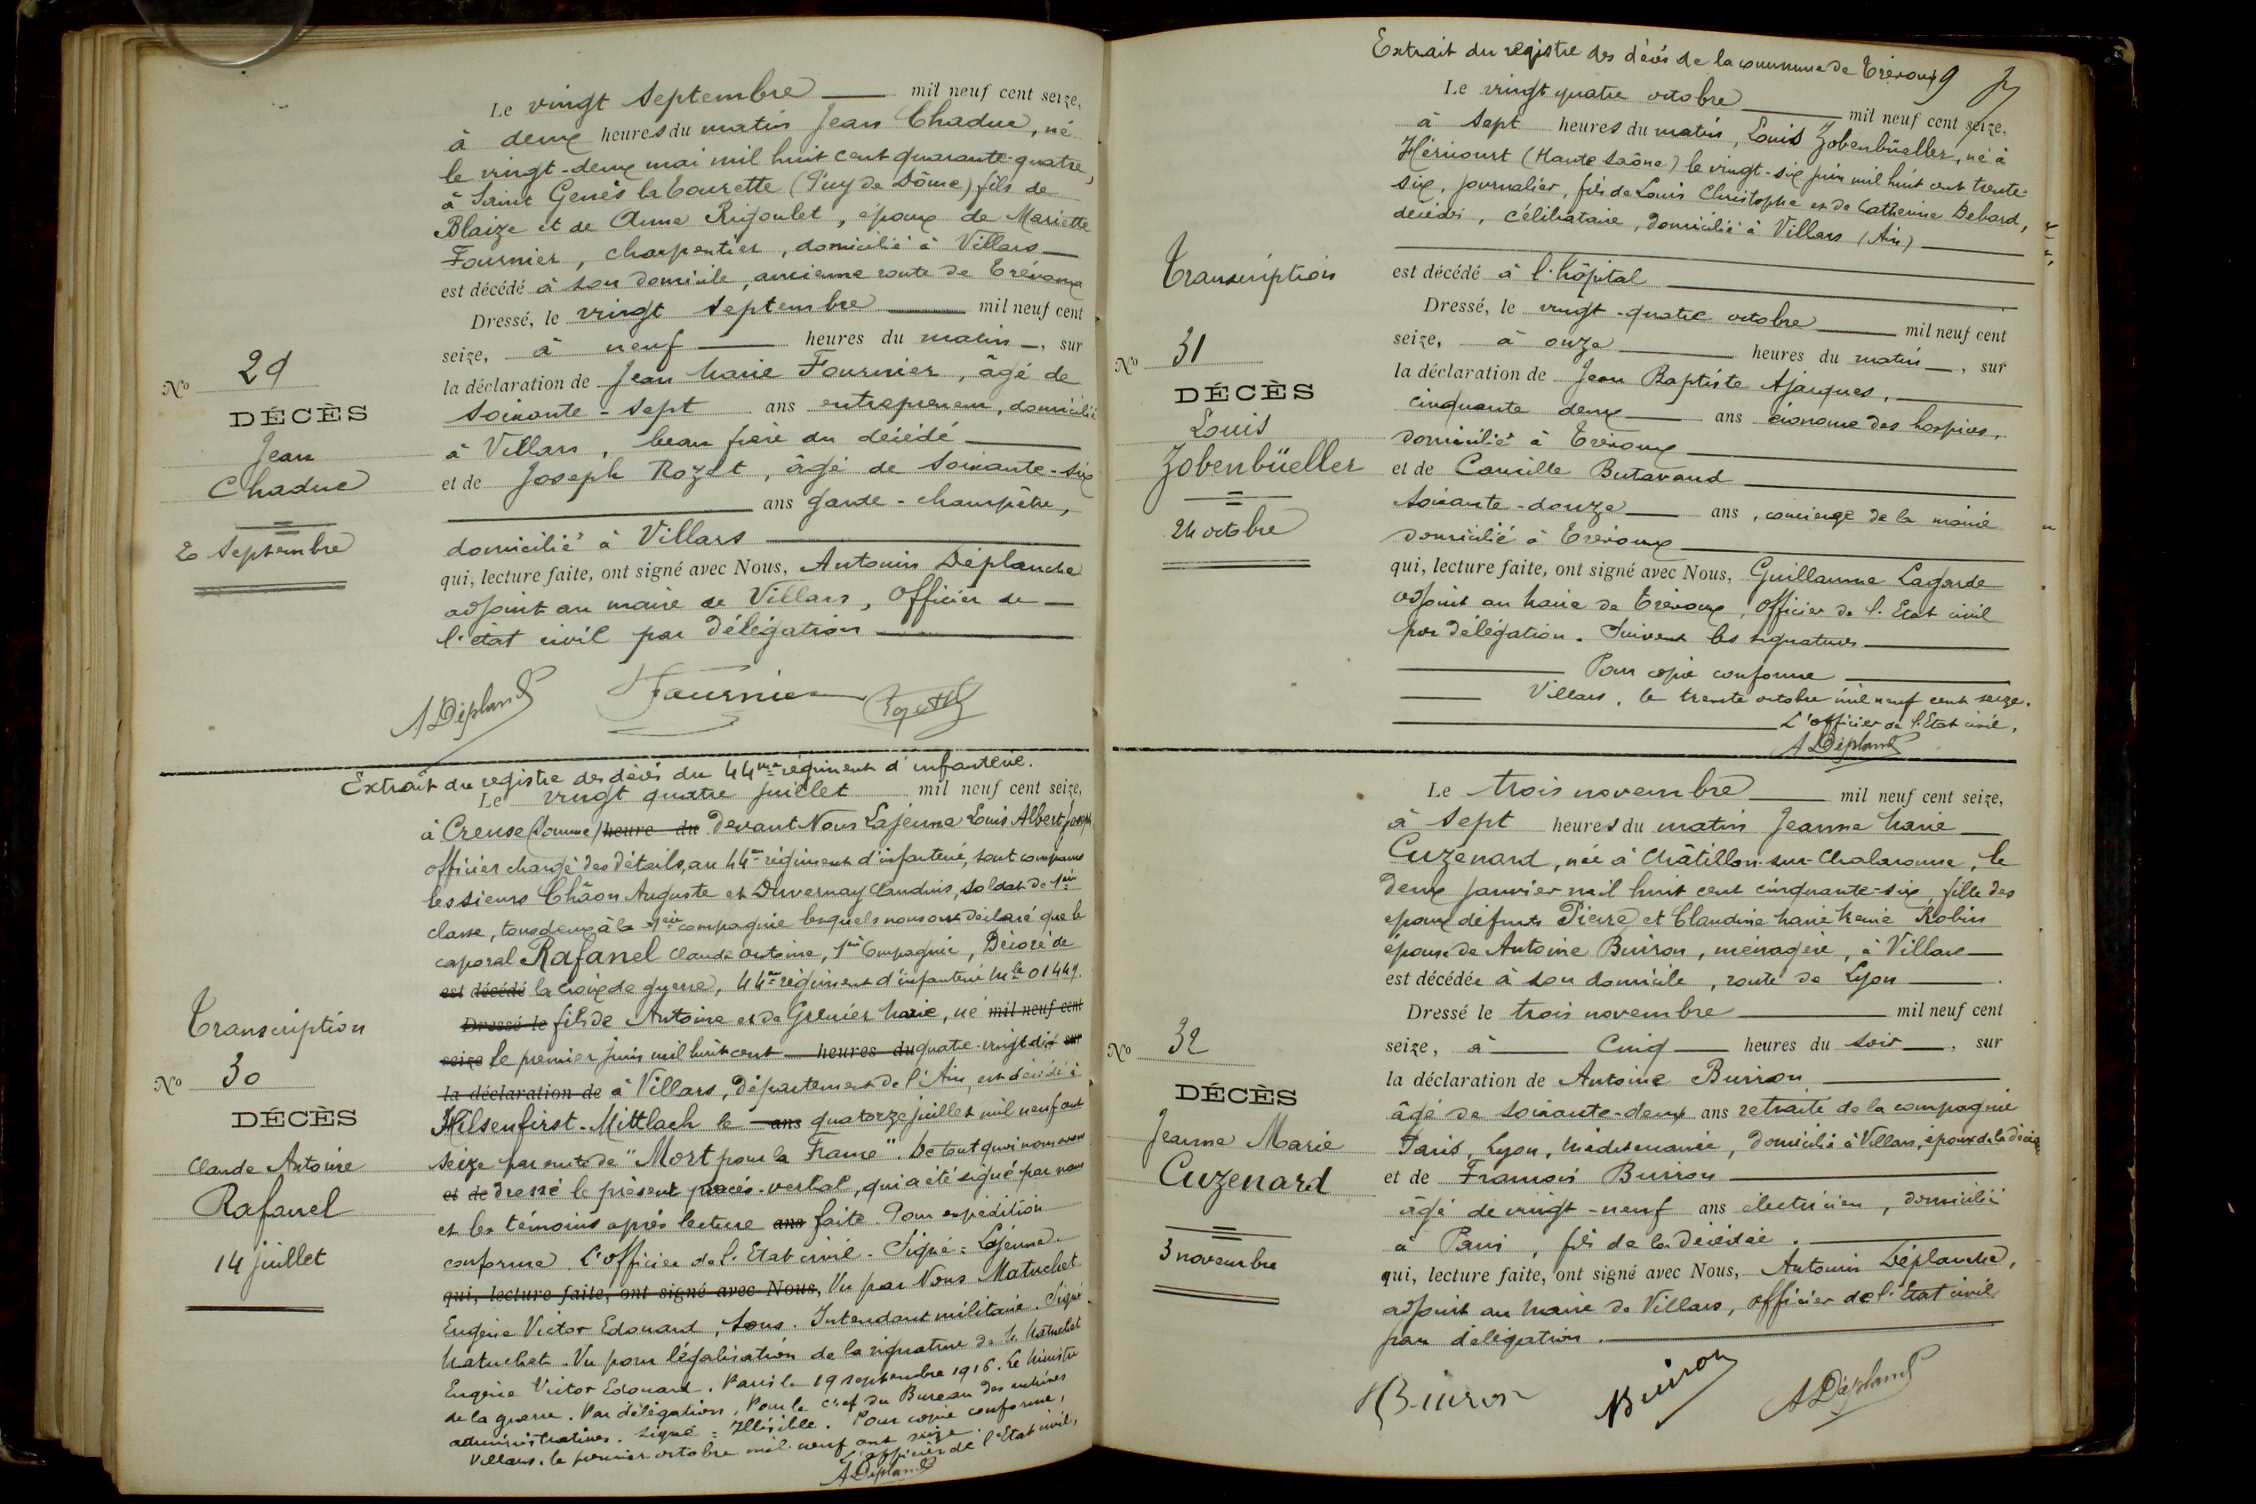 Le vingt Septembre mil neuf cent seize,
à deux heures du matin Jean Chaduc, né
le vingt-deux mai mil huit cent quarante-quatre,
à Saint Genès la Tourette (Puy de Dôme) fils de
Blaize et de Anne Rigoulet, époux de Mariette
Fournier, charpentier, domicilié à Villars
est décédé à son domicile, ancienne route de Trévoux
Dressé, le vingt Septembre mil neuf cent
seize, à neuf heures du matin, sur
la déclaration de Jean Marie Fournier, âgé de
soixante-sept ans entrepreneur, domicilié
à Villars, beau frère du décédé
et de Joseph Rozet, âgé de soixante-six
ans garde-champêtre,
domicilié à Villars
qui, lecture faite, ont signé avec Nous, Antonin Déplanche
adjoint au maire de Villars, Officier de
l'état civil par délégation
No 29
DÉCÈS
Jean
Chaduc
20 Septembre
ADéplanche Fournier Rozet
Extrait du registre des décès du 44me régiment d'infanterie.
Le vingt quatre juillet mil neuf cent seize,
à Creuse (Somme) heure du devant Nous Lajeune Louis Albert Joseph
officier chargé des détails, au 44me régiment d'infanterie, sont comparus
les sieurs Châon Auguste et Duvernay Claudius, soldat de 1ère
classe, tous deux à la 1ère compagnie lesquels nous ont déclaré que le
caporal Rafanel Claude Antoine, 1ère Compagnie, Décoré de
est décédé la croix de guerre, 44me régiment d'infanterie Mle 01449.
Dressé le fils de Antoine et de Grenier Marie, né mil neuf cent
seize le premier juin mil huit cent heures du quatre-vingt dix sur
la déclaration de à Villars, département de l'Ain, est décédé à
Hilsenfirst-Mittlach le ans quatorze juillet mil neuf cent
seize par suite de "Mort pour la France". De tout quoi nous avons
et de dressé le présent procès-verbal, qui a été signé par nous
et les témoins après lecture ans faite. Pour expédition
conforme L'officier de l'Etat civil. Signé: Lajeune.
qui, lecture faite, ont signé avec Nous, Vu par Nous Matuchet
Eugène Victor Edouard, Sous-Intendant militaire. Signé
Matuchet. Vu pour légalisation de la signature de M. Matuchet
Eugène Victor Edouard. Paris le 19 septembre 1916. Le Ministre
de la guerre. Par délégation. Pour le Chef du Bureau des archives
administratives. Signé: Illisible. Pour copie conforme,
Villars, le premier octobre mil neuf cent seize
L'officier de l'Etat civil,
ADéplanche
Transcription
No 30
DÉCÈS
Claude Antoine
Rafanel
14 juillet
Extrait du registre des décès de la commune de Trévoux 9
Le vingt quatre octobre mil neuf cent seize,
à sept heures du matin, Louis Zobenbüeller, né à
Héricourt (Haute Saône) le vingt-six juin mil huit cent trente-
six, journalier, fils de Louis Christophe et de Catherine Debard,
décédés, célibataire, domicilié à Villars (Ain)
est décédé à l'hôpital
Dressé, le vingt-quatre octobre mil neuf cent
seize, à onze heures du matin, sur
la déclaration de Jean Baptiste Ajarques,
cinquante deux ans économe des hospices,
domicilié à Trévoux
et de Camille Butavand
soixante-douze ans, concierge de la mairie
domicilié à Trévoux
qui, lecture faite, ont signé avec Nous, Guillaume Lagarde
adjoint au Maire de Trévoux, Officier de l'Etat civil
par délégation. Suivent les signatures
Pour copie conforme
Villars, le trente octobre mil neuf cent seize.
L'officier de l'Etat civil,
ADéplanche
Transcription
No 31
DÉCÈS
Louis
Zobenbüeller
24 octobre
Le trois novembre mil neuf cent seize,
à sept heures du matin Jeanne Marie
Cuzenard, née à Châtillon-sur-Chalaronne, le
deux janvier mil huit cent cinquante-six, fille des
époux défunts Pierre et Claudine Marie Robin
épouse de Antoine Buiron, ménagère, à Villars
est décédée à son domicile, route de Lyon
Dressé le trois novembre mil neuf cent
seize, à Cinq heures du soir, sur
la déclaration de Antoine Buiron
âgé de soixante-deux ans retraité de la compagnie
Paris, Lyon, Méditerranée, domicilié à Villars, époux de la décédée
et de François Buiron
âgé de vingt-neuf ans électricien, domicilié
à Paris, fils de la décédée.
qui, lecture faite, ont signé avec Nous, Antonin Déplanche,
adjoint au Maire de Villars, officier de l'Etat civil
par délégation.
No 32
DÉCÈS
Jeanne Marie
Cuzenard
3 novembre
Buiron Buiron ADéplanche